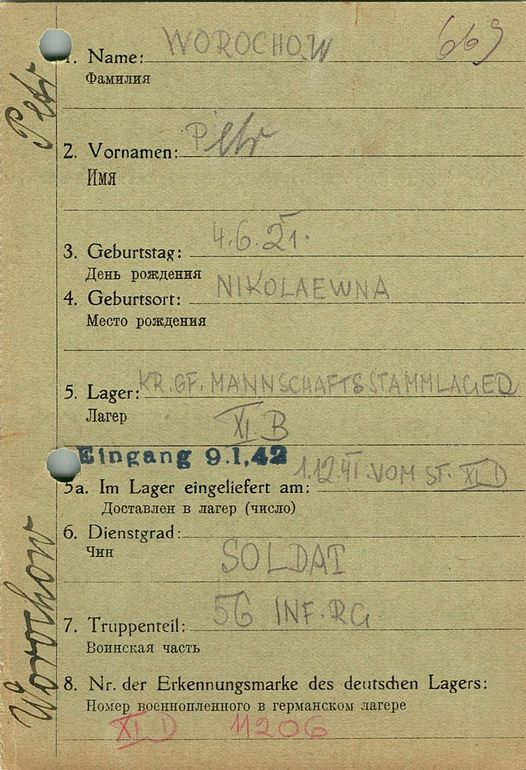 669
1. Name: WOROCHOW
Фамилия
2. Vornamen: Petr
Имя
3. Geburtstag: 4.6.21.
День рождения
4. Geburtsort: NIKOLAEWNA
Место рождения
5. Lager: KR. GF. MANNSCHAFTSSTAMMLAGER
Лагер
XI B
Eingang 9.1.42
5a. Im Lager eingeliefert am: 1.12.41. VOM ST. XI D
Доставлен в лагер (число)
6. Dienstgrad:
Чин
SOLDAT
7. Truppenteil: 56 INF. RG.
Воинская часть
8. Nr. der Erkennungsmarke des deutschen Lagers:
Номер военнопленного в германском лагере
XI D 11206
Worochow Petr